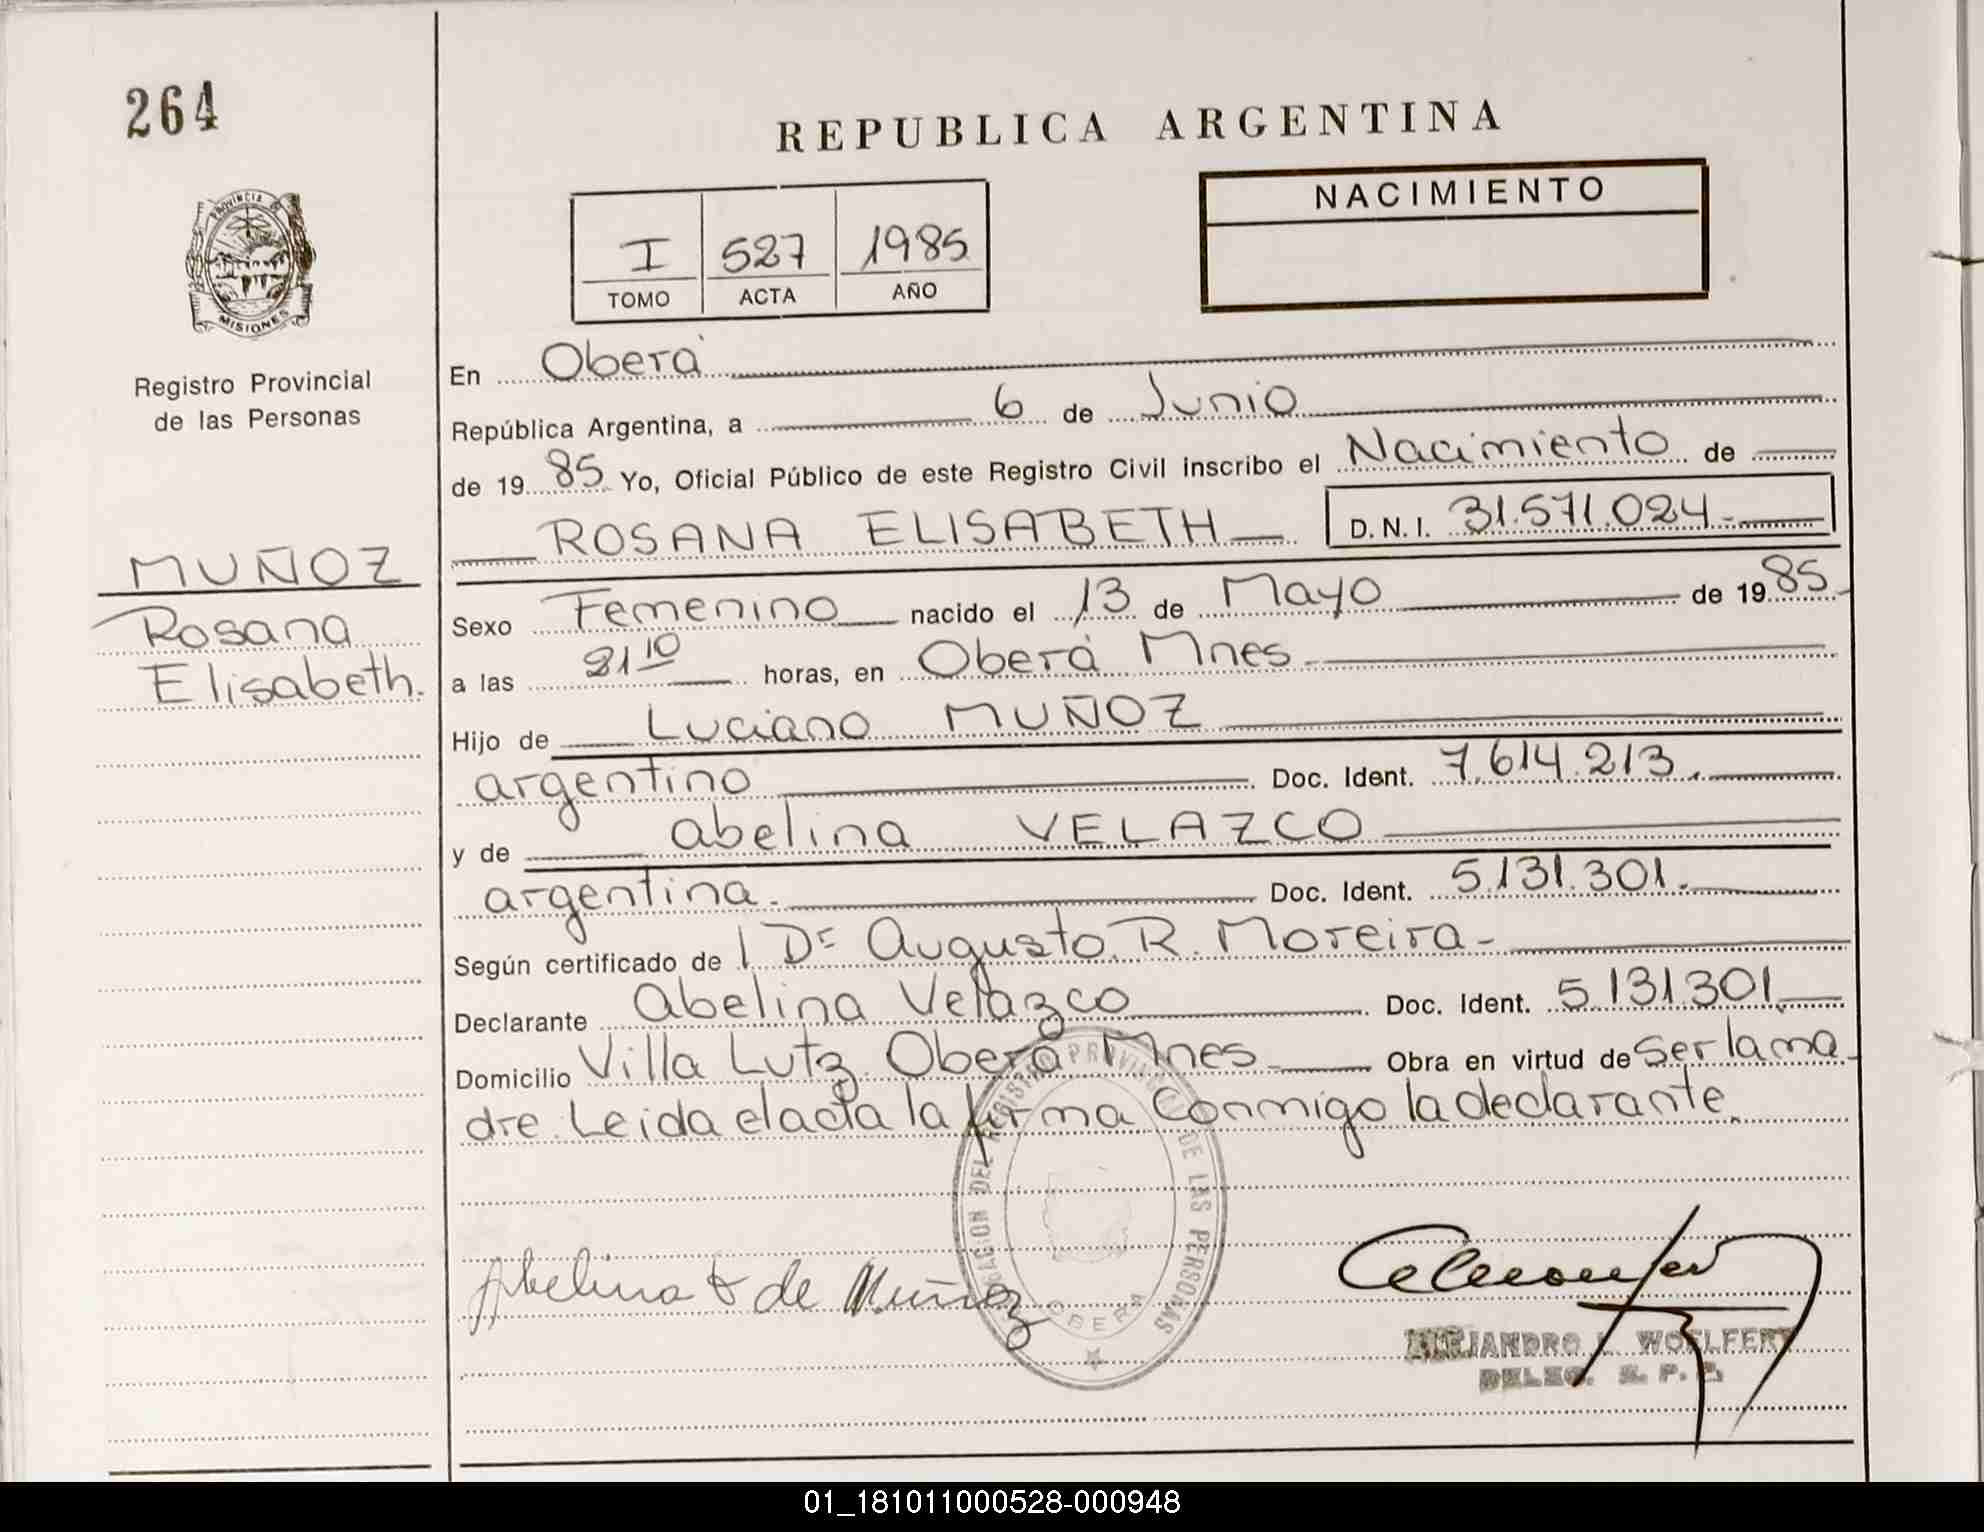 264
REPUBLICA ARGENTINA
PROVINCIA DE
MISIONES
Registro Provincial
de las Personas
I 527 1985
TOMO ACTA AÑO
NACIMIENTO
MUÑOZ
Rosana
Elisabeth.
En Oberá
República Argentina, a 6 de Junio
de 19 85 Yo, Oficial Público de este Registro Civil inscribo el Nacimiento de
ROSANA ELISABETH D.N.I. 31.571.024
Sexo Femenino nacido el 13 de Mayo de 19 85
a las 21 10 horas, en Oberá Mnes
Hijo de Luciano MUÑOZ
argentino Doc. Ident. 7.614.213.
y de abelina VELAZCO
argentina. Doc. Ident. 5.131.301.
Según certificado de l Dr Augusto R. Moreira
Declarante abelina Velazco Doc. Ident. 5.131.301
Domicilio Villa Lutz Oberá Mnes Obra en virtud de Ser la ma
dre. Leida el acta la firma Conmigo la declarante.
DEL REGISTRO PROVINCIAL DE LAS PERSONAS
OBERA
Abelina de Muñoz
ALEJANDRO L. WOELFERT
DELEG. R. P. P.
01_181011000528-000948